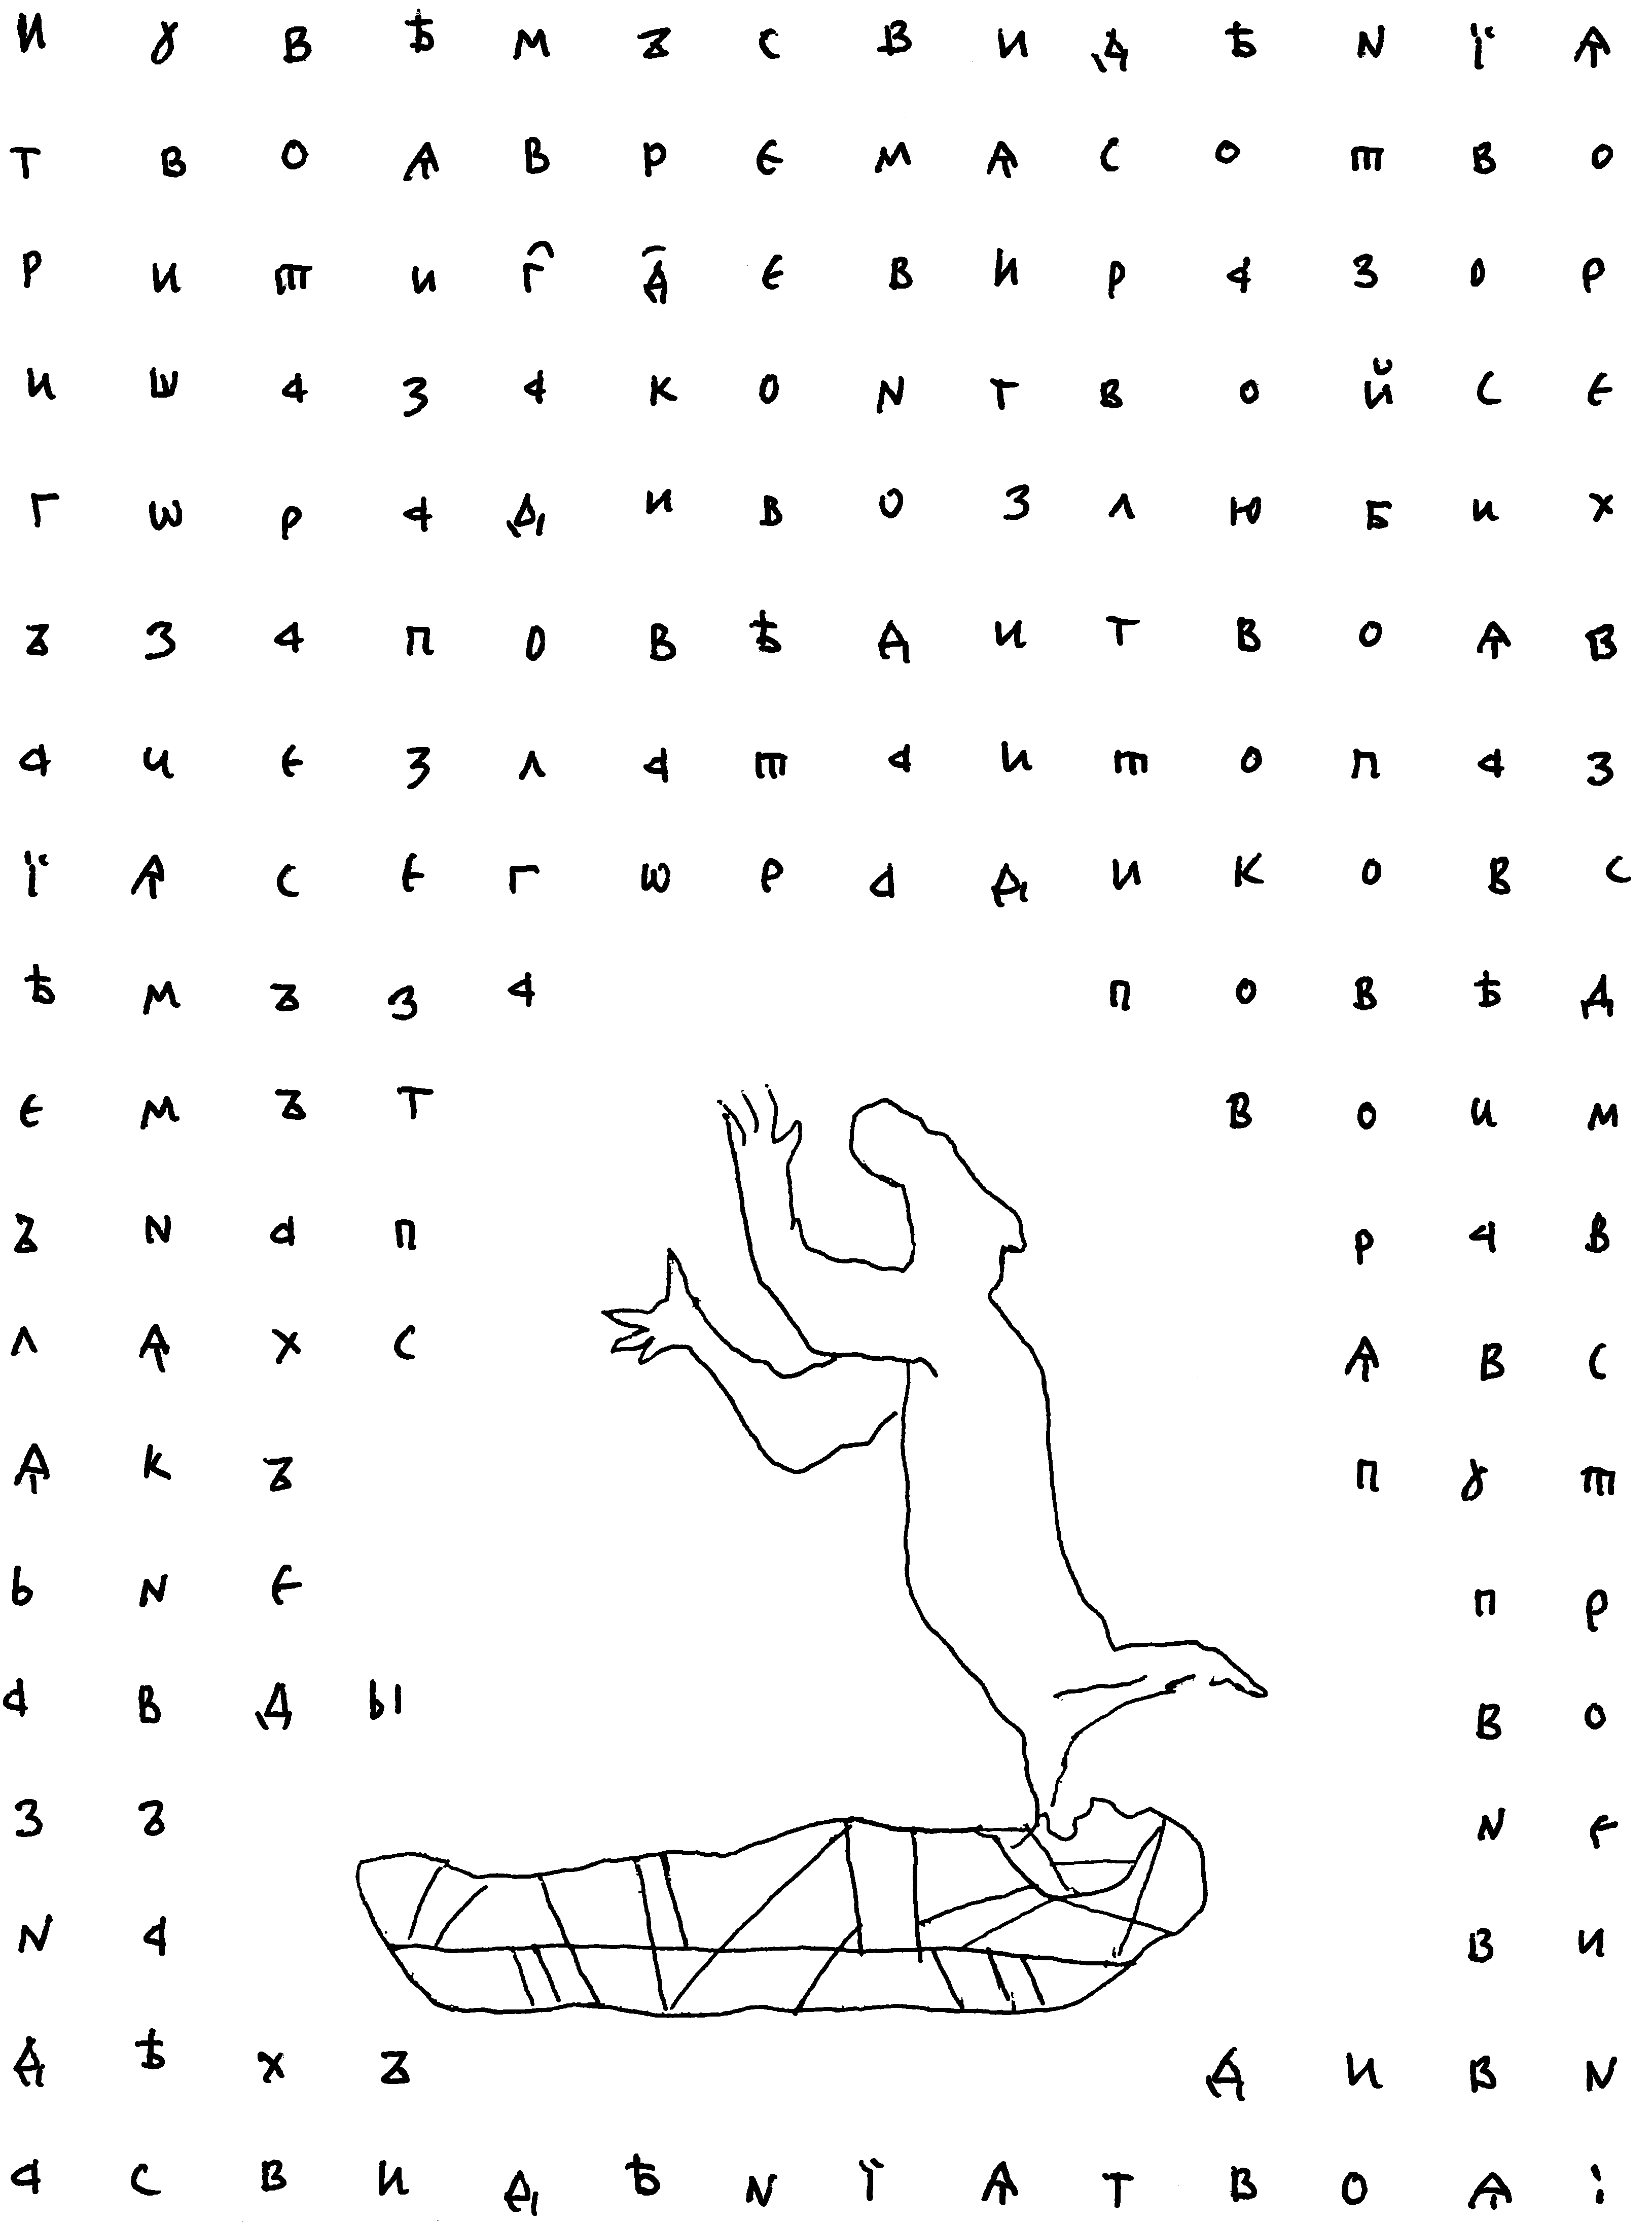 И Ꙋ В Ѣ М Ъ С В И Д Ѣ N Ї Ѧ
Т В О Ѧ В Р Є М Ѧ С О Т В О
Р И Т И Г҄ Д҄ Є В И Р А З О Р
И Ш А З А К О N Т В О Й С Є
Г Ѡ Р А Д И В О З Л Ю Б И Х
Ъ З А П О В Ѣ Д И Т В О Ѧ В
А Ч Є З Л А Т А И Т О П А З
Ї Ѧ С Є Г Ѡ Р А Д И К О В С
Ѣ М Ъ З А П О В Ѣ Д
Є М Ъ Т В О И М
Ъ N А П Р А В
Л Ѧ Х С Ѧ В С
Ѧ К Ъ П Ꙋ Т
Ь N Є П Р
А В Д Ы В О
З Ъ N Є
N А В И
Д Ѣ Х Ъ Д И В N
А С В И Д Ѣ N Ї Ѧ Т В О Ѧ :